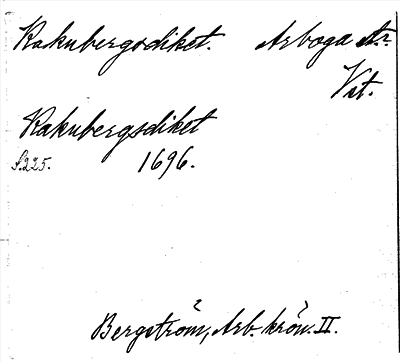 Kakubergsdiket. Arboga st.
Vst.
Kakubergsdiket
s.225. 1696.
Bergström, Arb. krön. II.